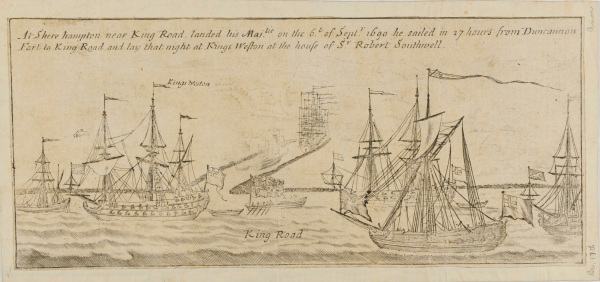 At Shere hampton near King Road. landed his Majtie on the 6.t of Septr 1690 he sailed in 27 hours from Duncannon
Fort to King Road and lay that night at Kings Weston at the house of Sr Robert Southwell.
Kings Weston
King Road